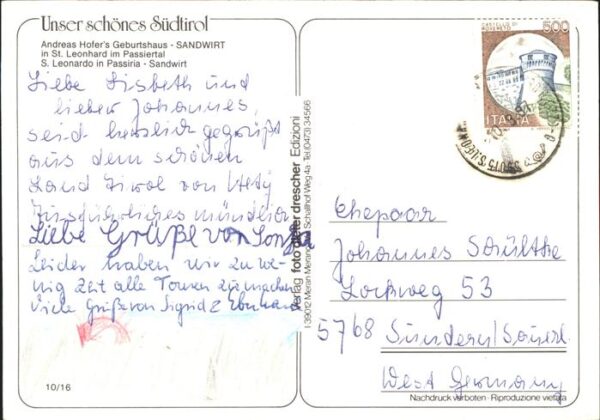 Unser schönes Südtirol
Andreas Hofer's Geburtshaus - SANDWIRT
in St. Leonhard im Passiertal
S. Leonardo in Passiria - Sandwirt
Liebe Lisbeth und
lieber Johannes,
seid herzlich gegrüßt
aus dem schönen
Land Tirol von Hety
Ausführliches mündlich
Liebe Grüße von
Leider haben wir zu we-
nig Zeit alle Touren zu machen
Viele Grüße von Sigrid & Eberhard
10/16
Verlag foto dieter drescher Edizioni
I-39012 Meran Merano Schafhof Weg 4a Tel.(0473) 34566
CASTELLO DI
ROVERETO
500
ITALIA
Ehepaar
Johannes Schulthe
Lockweg 53
5768 Sundern/Sauerl.
West Germany
Nachdruck verboten · Riproduzione vietata